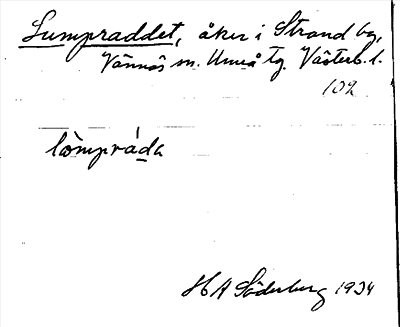 Lumpraddet, åker i Strand by,
Vännäs sn. Umeå tg. Västerb. l.
102
lòmpráda
H A Söderberg 1934